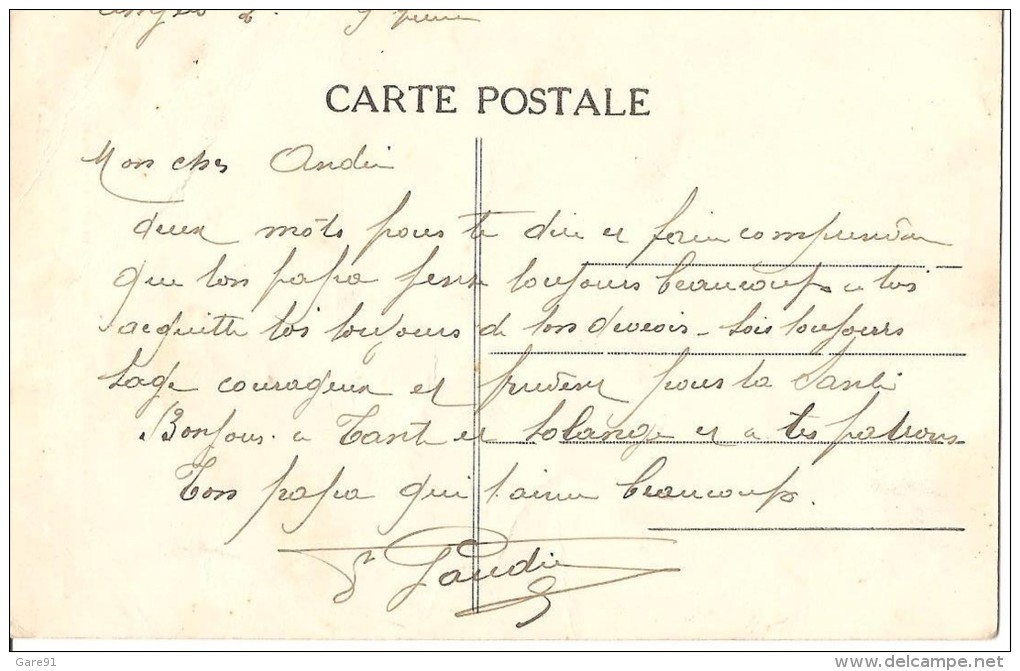 Angers le
CARTE POSTALE
Mon cher André
deux mots pour te dire et faire comprendre
que ton papa pense toujours beaucoup a toi
acquitte toi toujours de ton devoir - sois toujours
sage courageux et prudent pour ta santé
Bonjour a Tante et Solange et a tes patrons
Ton papa qui t'aime beaucoup.
Gare91
www.delcampe.net